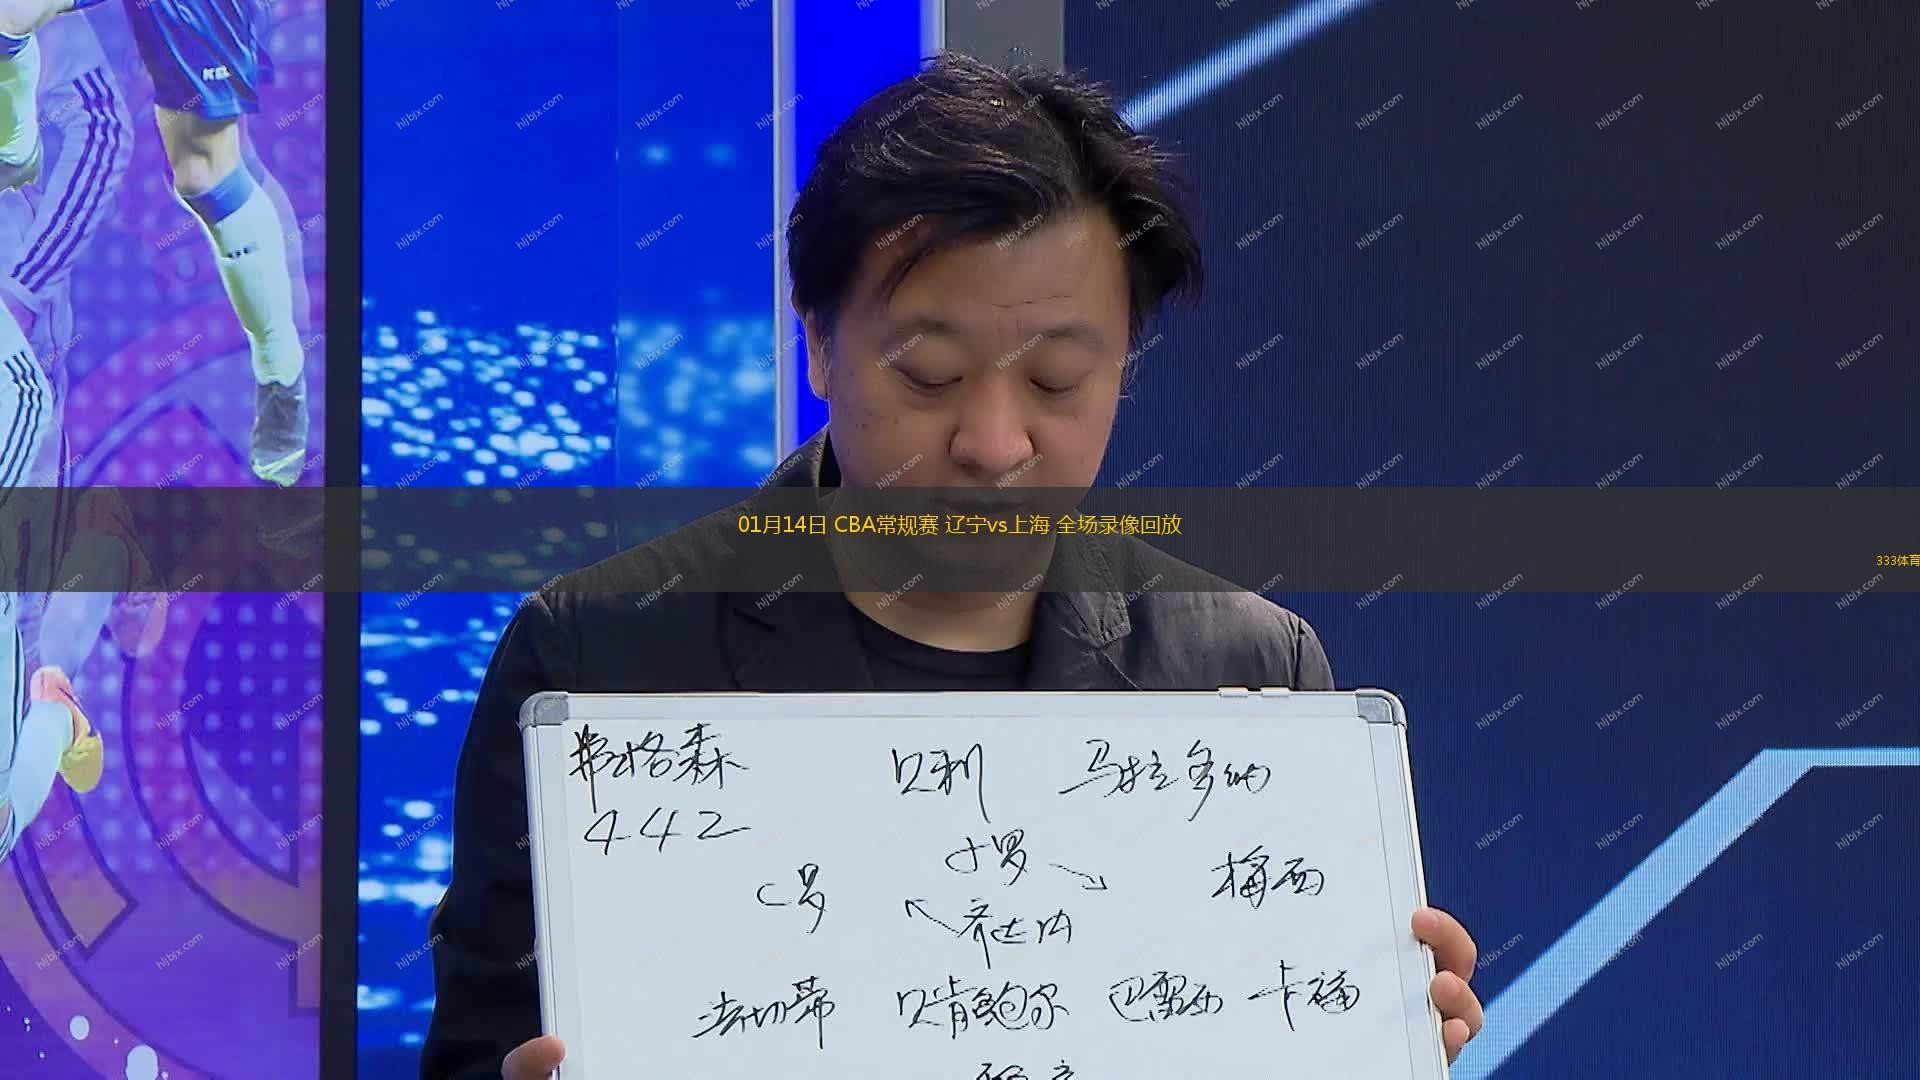 KEL
01月14日 CBA常规赛 辽宁vs上海 全场录像回放
333体育
弗格森 贝利 马拉多纳
442
小罗
C罗 梅西
齐达内
法切蒂 贝肯鲍尔 巴雷西 卡福
hljbjx.com